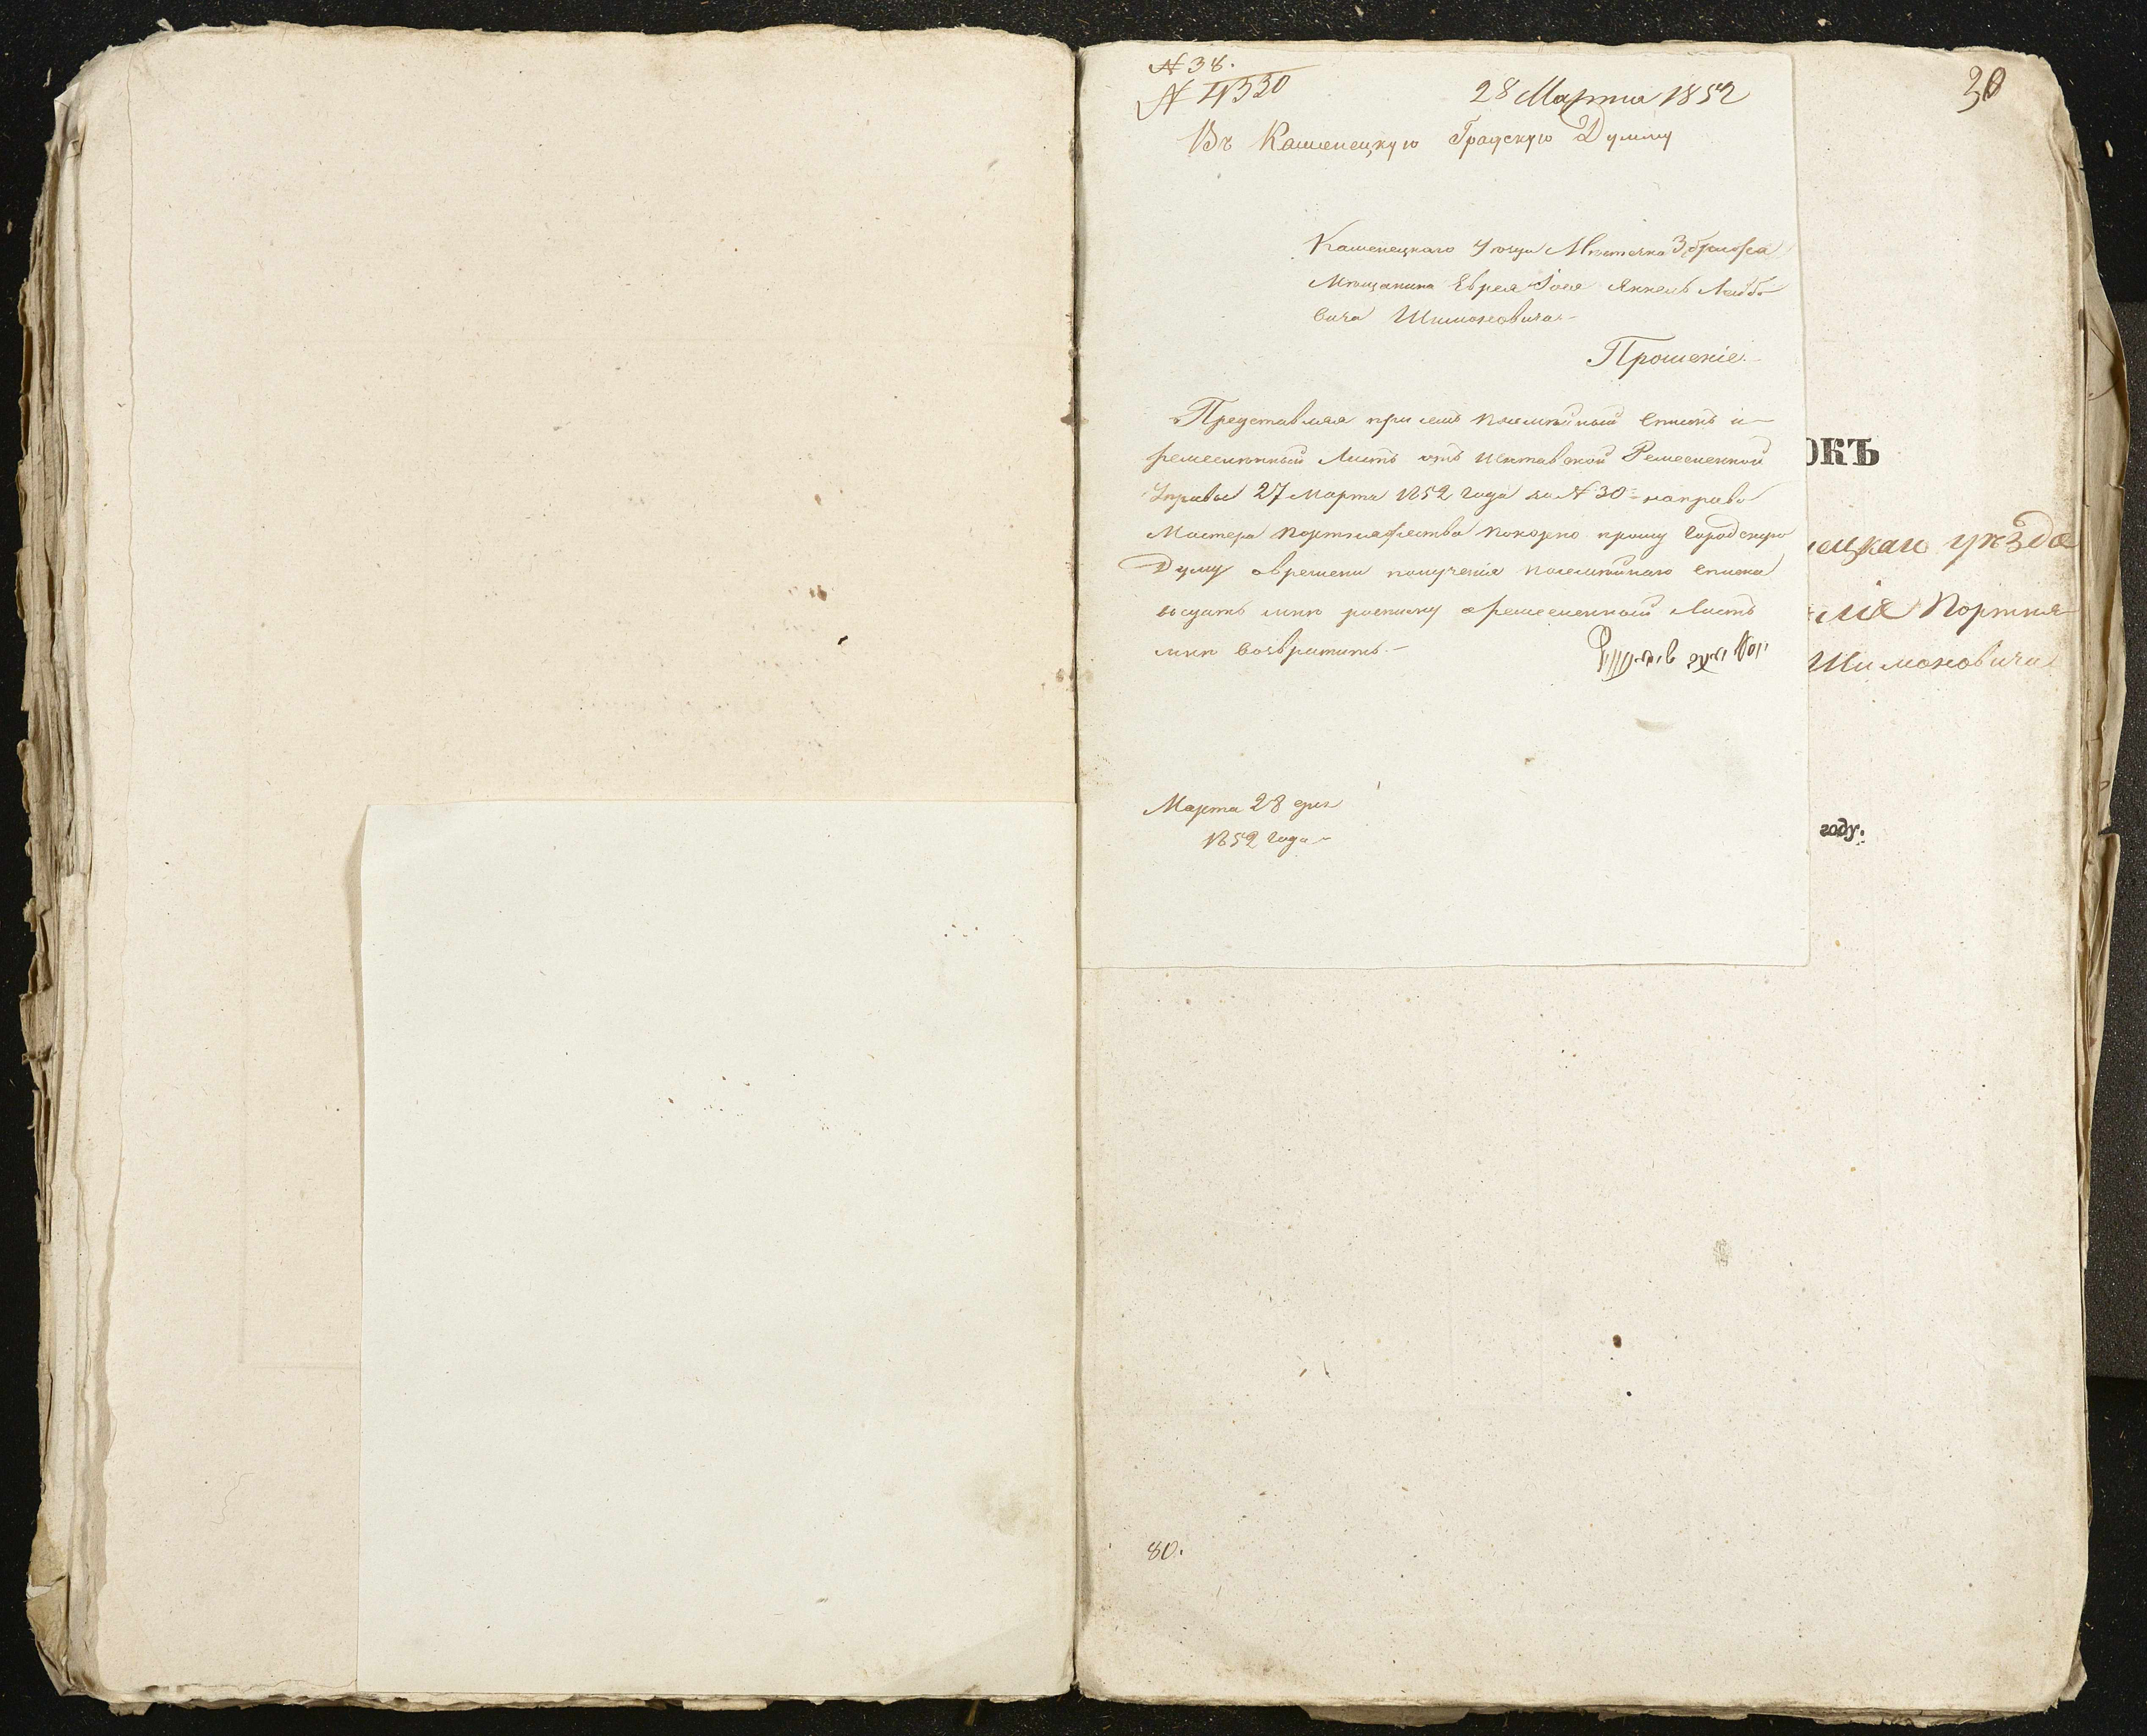 № 38.
№ 1330
28 Марта 1852
30
Въ Каменецкую Градскую Думму
Каменецкаго Уезда Местечка Збрижа
Мещанина Еврея Иося Янкель Лейбо
вича Шимоновича
Прошеніе.
Представляя при семъ посемейный списокъ и
ремесленный Листъ отъ Цехтавской Ремесленной
Управы 27 Марта 1852 года за № 30 направо
Мастера портняжества покорно прошу Городскую
Думу овремени полученія посемейнаго списка
выдать мне росписку а ремесленный Листъ
мне возвратить.
Марта 28 дня
1852 года
ОКЪ
ецкаго уезда
Портня
Шимоновича
году.
80.